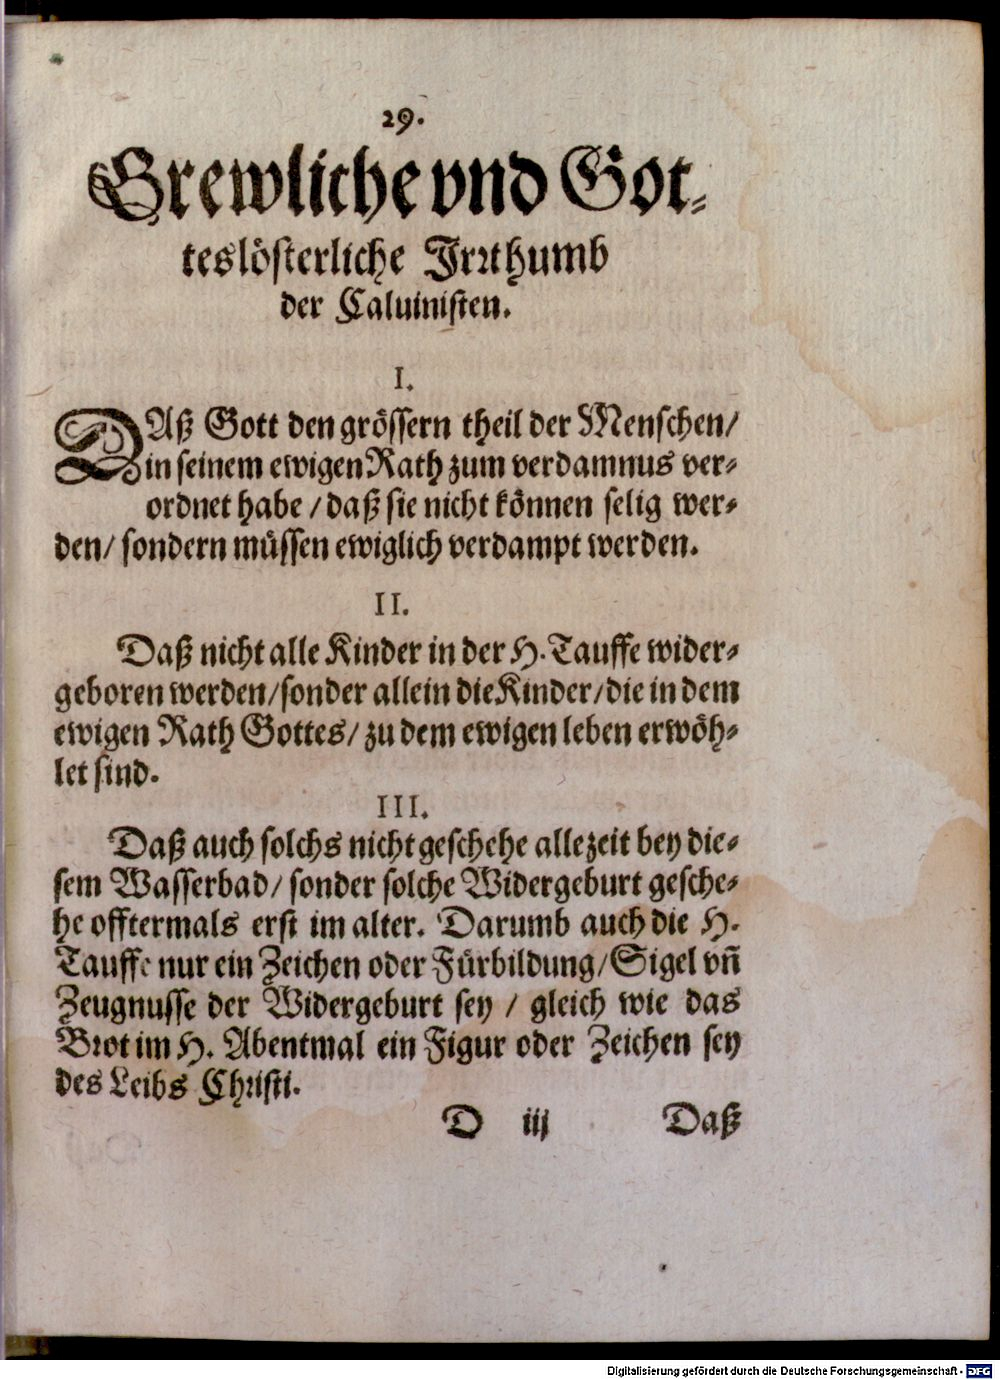 29.
Grewliche vnd Got-
teslösterliche Irrthumb
der Caluinisten.
I.
DAß Gott den grössern theil der Menschen/
in seinem ewigen Rath zum verdamnus ver-
ordnet habe / daß sie nicht können selig wer-
den/ sondern müssen ewiglich verdampt werden.
II.
Daß nicht alle Kinder in der H. Tauffe wider-
geboren werden/sonder allein die Kinder/die in dem
ewigen Rath Gottes/ zu dem ewigen leben erwöh-
let sind.
III.
Daß auch solchs nicht geschehe allezeit bey die-
sem Wasserbad/ sonder solche Widergeburt gesche-
he offtermals erst im alter. Darumb auch die H.
Tauffe nur ein Zeichen oder Fürbildung/Sigel vñ
Zeugnusse der Widergeburt sey / gleich wie das
Brot im H. Abentmal ein Figur oder Zeichen sey
des Leibs Christi.
D iij Daß
Digitalisierung gefördert durch die Deutsche Forschungsgemeinschaft - DFG